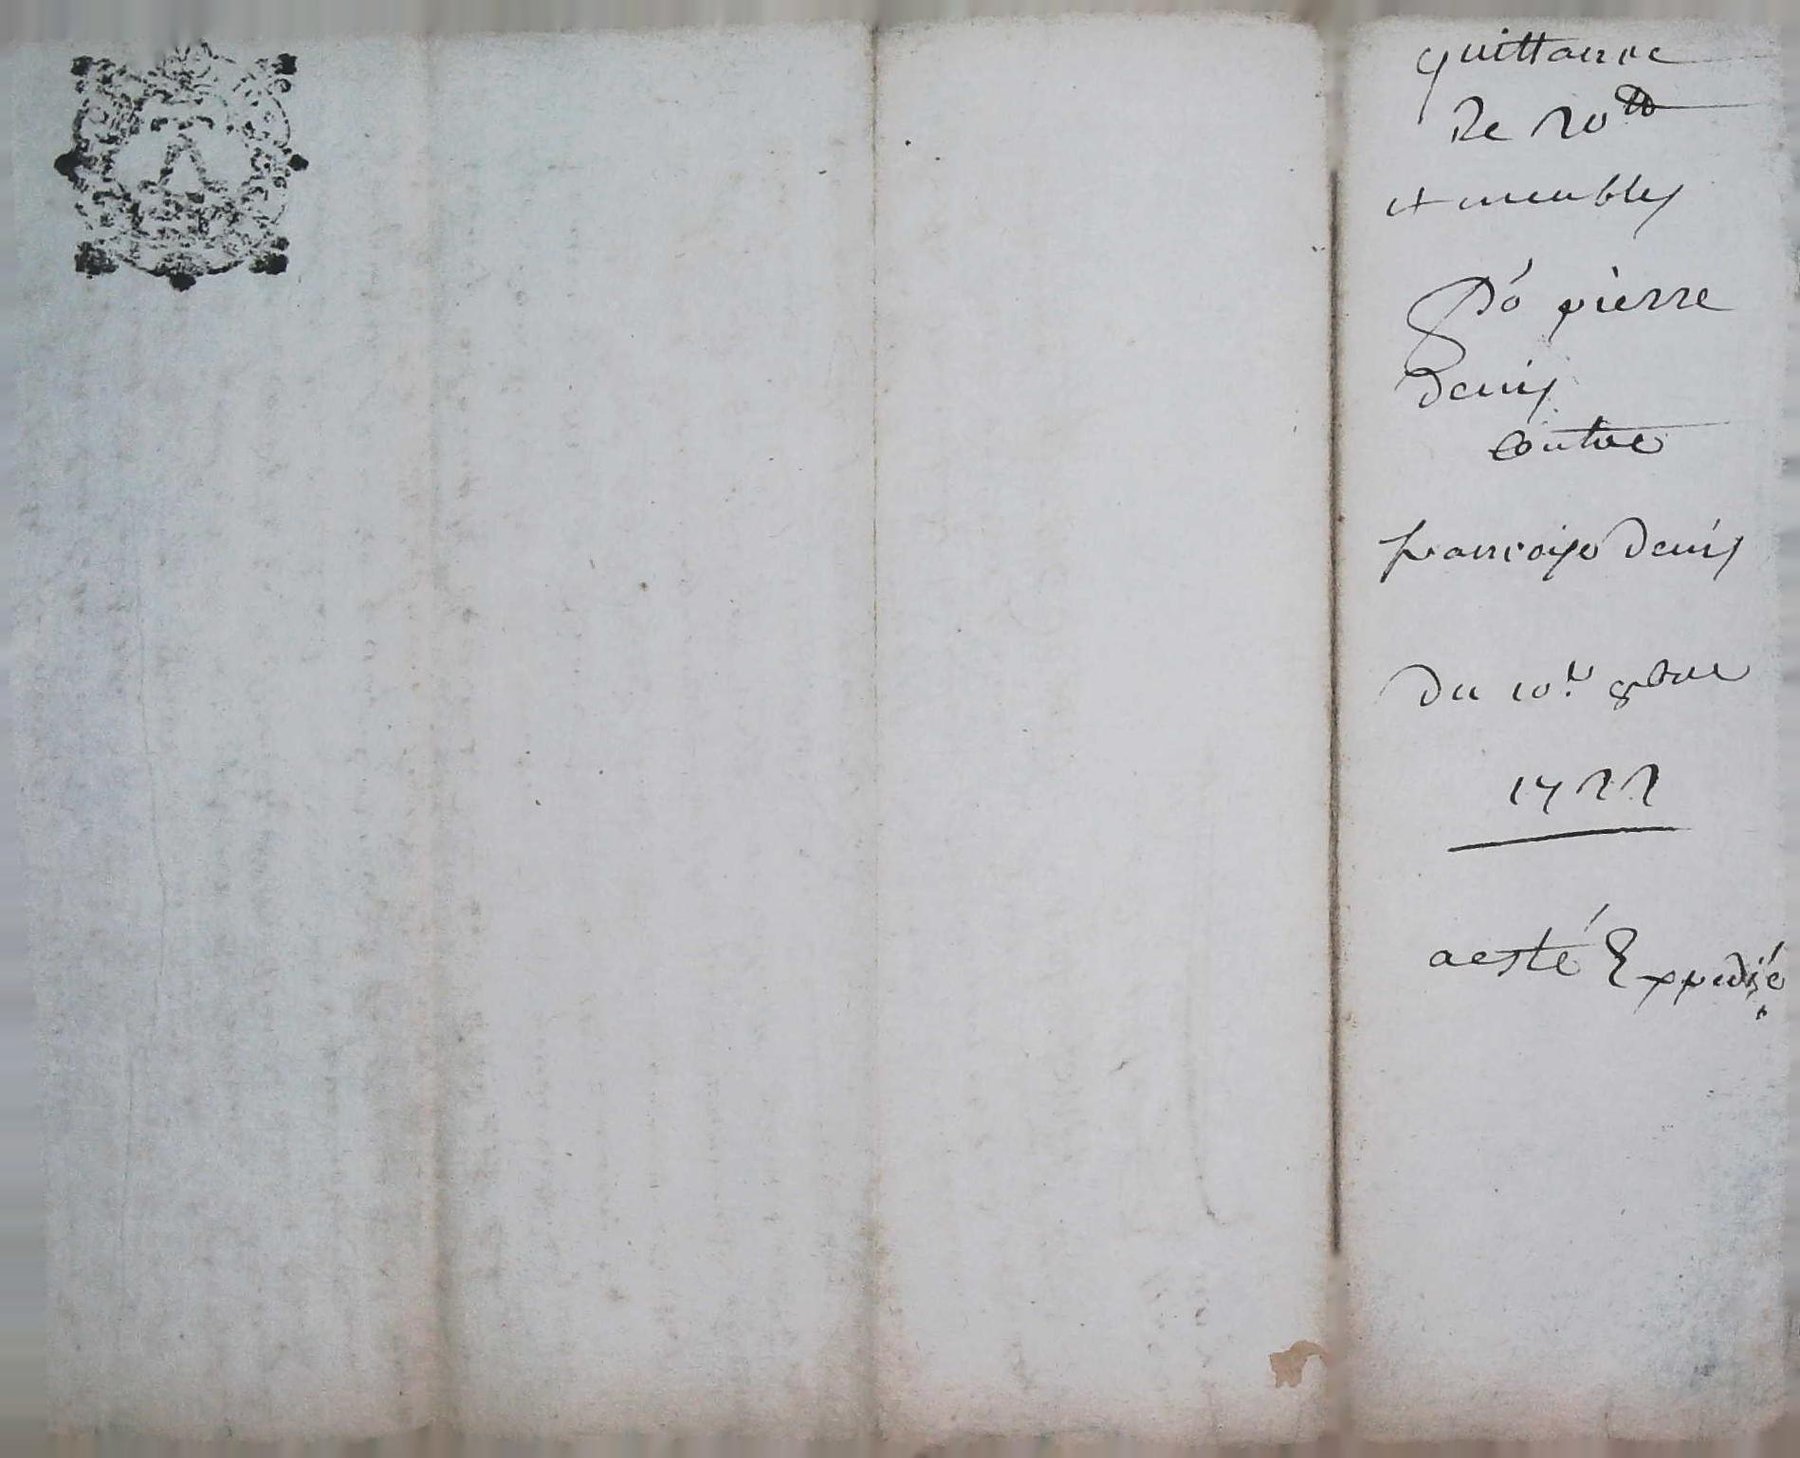 quittance
de 20 ₶
et meubles
Po pierre
denis
Contre
francoise denis
Du 10.e 8bre
1722
a esté Expedié